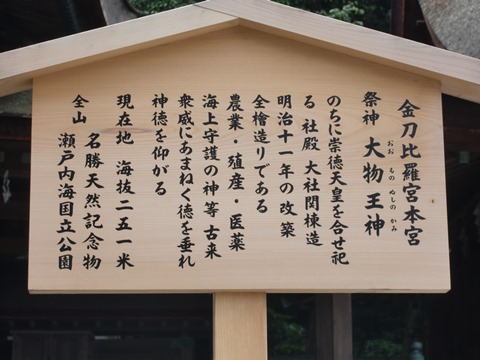 金刀比羅宮本宮
祭神 大物主神
おお ものぬしの かみ
のちに崇徳天皇を合せ祀
る 社殿 大社関棟造
明治十一年の改築
全檜造りである
農業・殖産・医薬
海上守護の神等 古来
衆感にあまねく徳を垂れ
神徳を仰がる
現在地 海抜二五一米
全山 名勝天然記念物
瀬戸内海国立公園